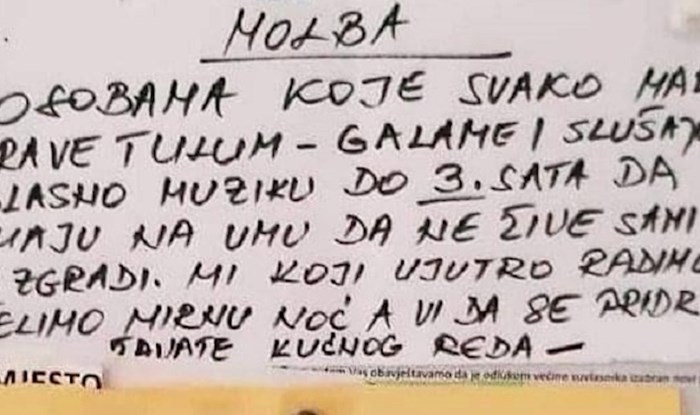 MOLBA
OSOBAMA KOJE SVAKO MAL
RAVE TULUM - GALAME I SLUŠAJ
LASNO MUZIKU DO 3. SATA DA
MAJU NA UMU DA NE ŽIVE SAMI
ZGRADI. MI KOJI UJUTRO RADIMO
ELIMO MIRNU NOĆ A VI DA SE PRIDR
KUĆNOG REDA —
Vas obavještavamo da je odlukom većine suvlasnika izabran novi
MJESTO